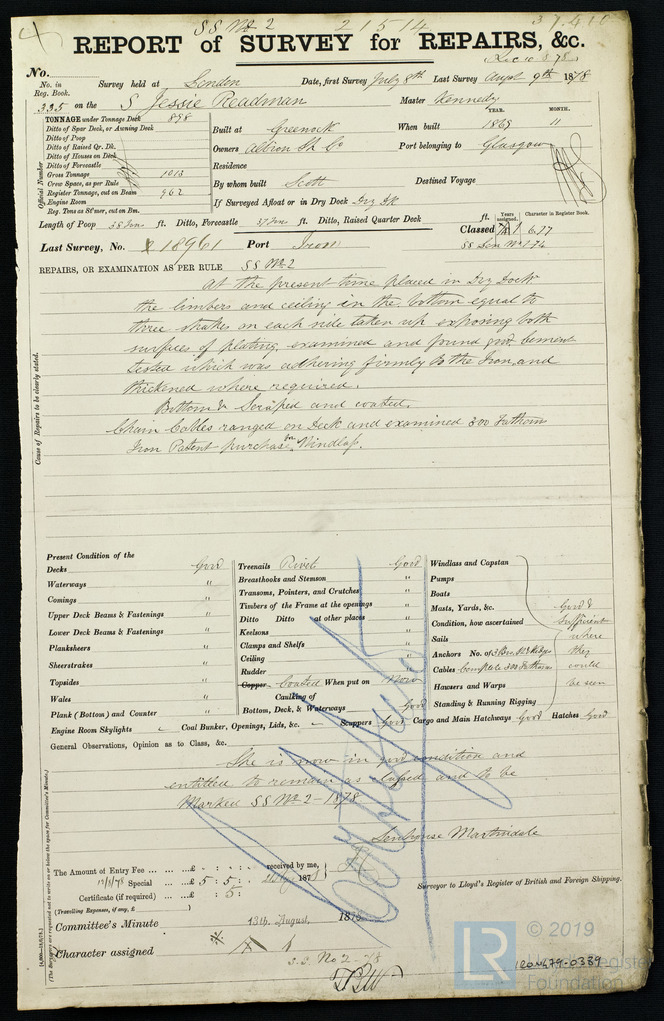 SS No 2 21514 37.410
REPORT of SURVEY for REPAIRS, &c.
Rec 10.8.78
No.
No. in Reg. Book. Survey held at London Date, first Survey July 8th Last Survey Augst 9th 1878
335 on the S Jessie Readman Master Kennedy
TONNAGE under Tonnage Deck 898
Ditto of Spar Deck, or Awning Deck
Ditto of Poop
Ditto of Raised Qr. Dk.
Ditto of Houses on Deck
Ditto of Forecastle
Gross Tonnage 1013
Crew Space, as per Rule
Register Tonnage, cut on Beam 962
Engine Room
Reg. Tons as St'mer, cut on Bm.
Official Number
YEAR. MONTH.
Built at Greenock When built 1869 11
Owners Albion Sh Co Port belonging to Glasgow
Residence
By whom built Scott Destined Voyage
If Surveyed Afloat or in Dry Dock Dry Dk
Length of Poop 38 Tons ft. Ditto, Forecastle 37 Tons ft. Ditto, Raised Quarter Deck ft.
Years assigned. Character in Register Book.
Classed 6.77
Last Survey, No. 18961 Port Iron SS Lon No 1-74
REPAIRS, OR EXAMINATION AS PER RULE SS No 2
At the present time placed in Dry Dock
the limbers and ceiling in the bottom equal to
three strakes on each side taken up exposing both
surfaces of plating, examined and found good. Cement
tested which was adhering firmly to the Iron, and
thickened where required.
Bottom & Scraped and coated.
Chain Cables ranged on Deck and examined 300 Fathoms
Iron Patent purchase Windlass.
Cause of Repairs to be clearly stated.
Present Condition of the
Decks Good
Waterways "
Comings "
Upper Deck Beams & Fastenings "
Lower Deck Beams & Fastenings "
Planksheers "
Sheerstrakes "
Topsides "
Wales "
Plank (Bottom) and Counter "
Treenails Rivet Good
Breasthooks and Stemson "
Transoms, Pointers, and Crutches "
Timbers of the Frame at the openings "
Ditto Ditto at other places "
Keelsons "
Clamps and Shelfs "
Ceiling "
Rudder "
Copper Coated When put on Now
Caulking of
Bottom, Deck, & Waterways Good
Windlass and Capstan
Pumps
Boats
Masts, Yards, &c. Good &
Condition, how ascertained Sufficient
Sails where
Anchors No. of 3 Brs No 2 Kedges they
Cables Complete 300 Fathoms could
Hawsers and Warps be seen
Standing & Running Rigging
Engine Room Skylights Coal Bunker, Openings, Lids, &c. Scuppers Good Cargo and Main Hatchways Good Hatches Good
General Observations, Opinion as to Class, &c.
She is now in good condition and
entitled to remain as classed and to be
Marked SS No 2 - 1878
Senhouse Martindale
The Amount of Entry Fee ... £ : : received by me,
Special ... £ 5 : 5 : 1878
Certificate (if required) ... £ : 5 :
(Travelling Expenses, if any, £ )
Surveyor to Lloyd's Register of British and Foreign Shipping.
Committee's Minute 13th August 187
Character assigned
S.S. No 2 - 78
(The Surveyors are requested not to write on or below the space for Committee's Minute.)
© 2019
LR
Lloyd's Register
Foundation
LRF-0339